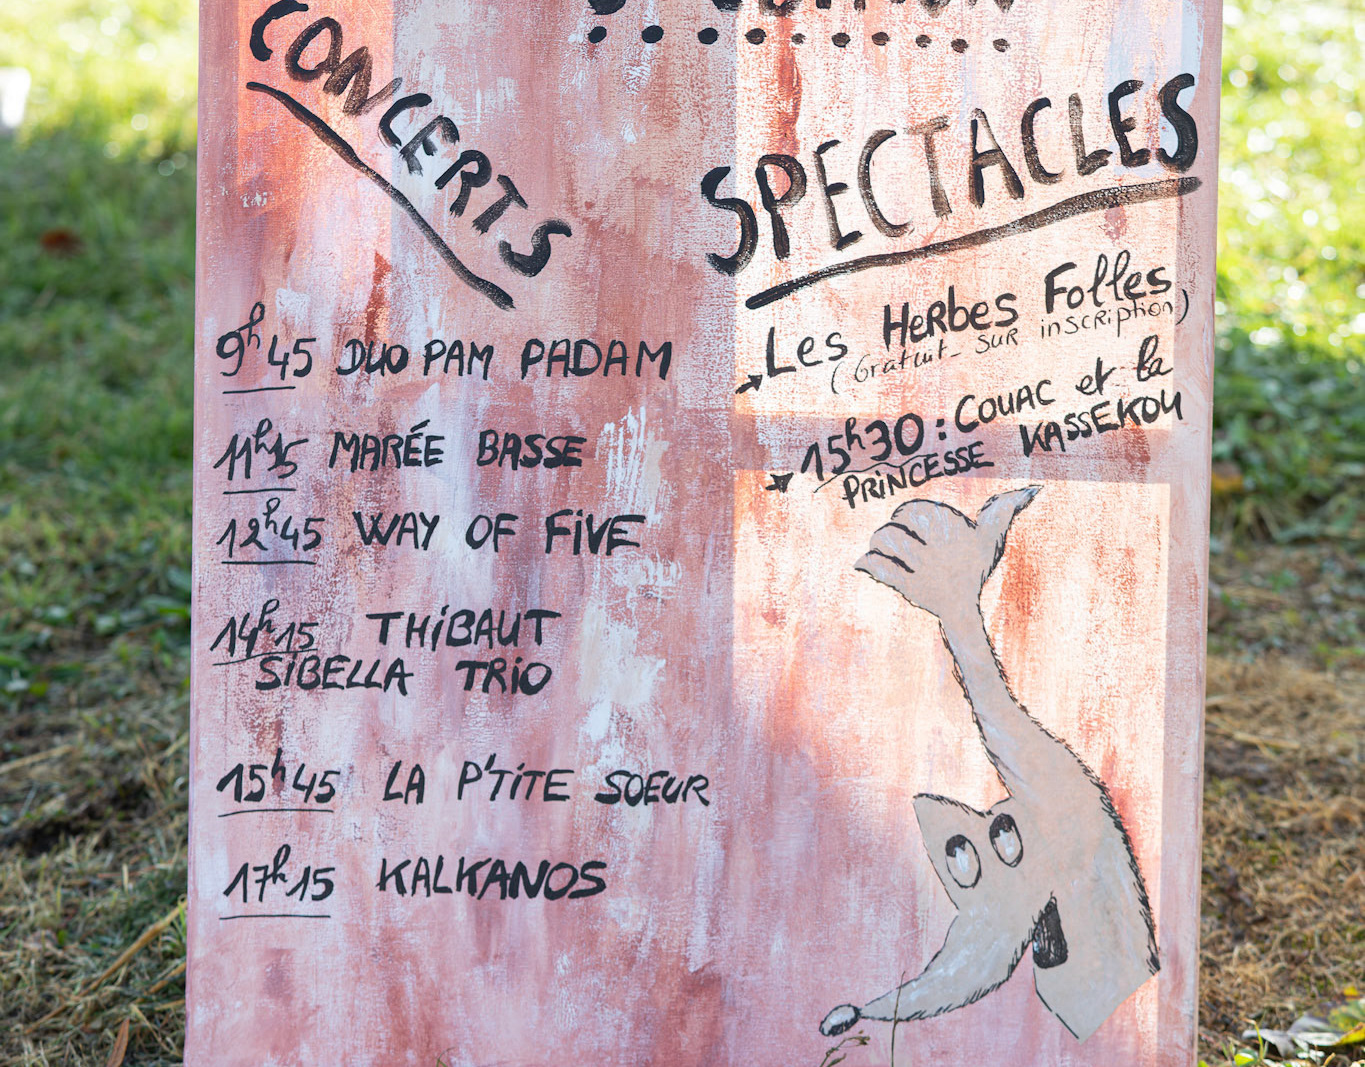 CONCERTS
9h45 DUO PAM PADAM
11h15 MARÉE BASSE
12h45 WAY OF FIVE
14h15 THIBAUT
SIBELLA TRIO
15h45 LA P'TITE SOEUR
17h15 KALKANOS
SPECTACLES
Les HERbes Folles
(Gratuit - SUR inscription)
15h30 : COUAC et la
PRINCESSE KASSEKOU